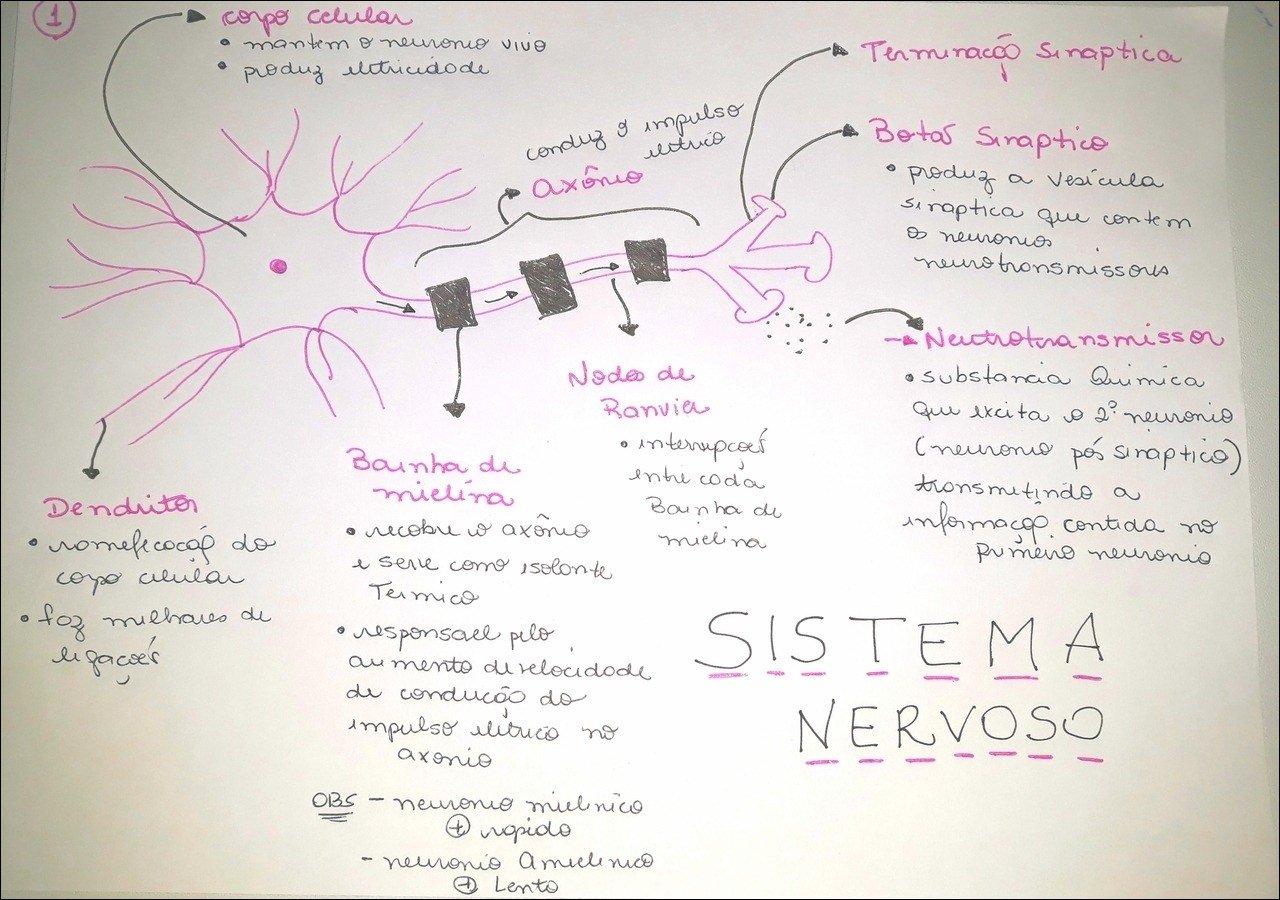 1
corpo celular
• mantem o neuronio vivo
• produz eletricidade
conduz o impulso
elétrico
axônio
Terminação Sinaptica
Botão Sinaptico
• produz a vesícula
sinaptica que contem
os neuronios
neurotransmissores
→ Neutrotransmissor
• substancia Química
que excita o 2º neuronio
(neuronio pós sinaptico)
transmitindo a
informação contida no
primeiro neuronio
Nodos de
Ranvier
• interrupções
entre cada
Bainha de
mielina
Bainha de
mielina
• recobre o axônio
e serve como isolante
Térmico
• responsael pelo
aumento de velocidade
de condução do
impulso elétrico no
axonio
OBS - neuronio mielinico
+ rapido
- neuronio Amielinico
+ Lento
Dendritos
• ramificação do
corpo celular
• faz milhares de
ligações
SISTEMA
NERVOSO